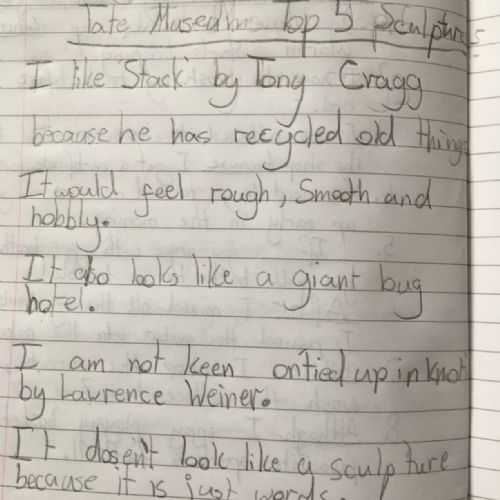 Tate Museum Top 5 Sculptures
I like Stack by Tony Cragg
because he has recycled old things
It would feel rough, Smooth and
hobbly.
It also looks like a giant bug
hotel.
I am not keen on tied up in knots
by Lawrence Weiner.
It dosen't look like a sculpture
because it is just words.